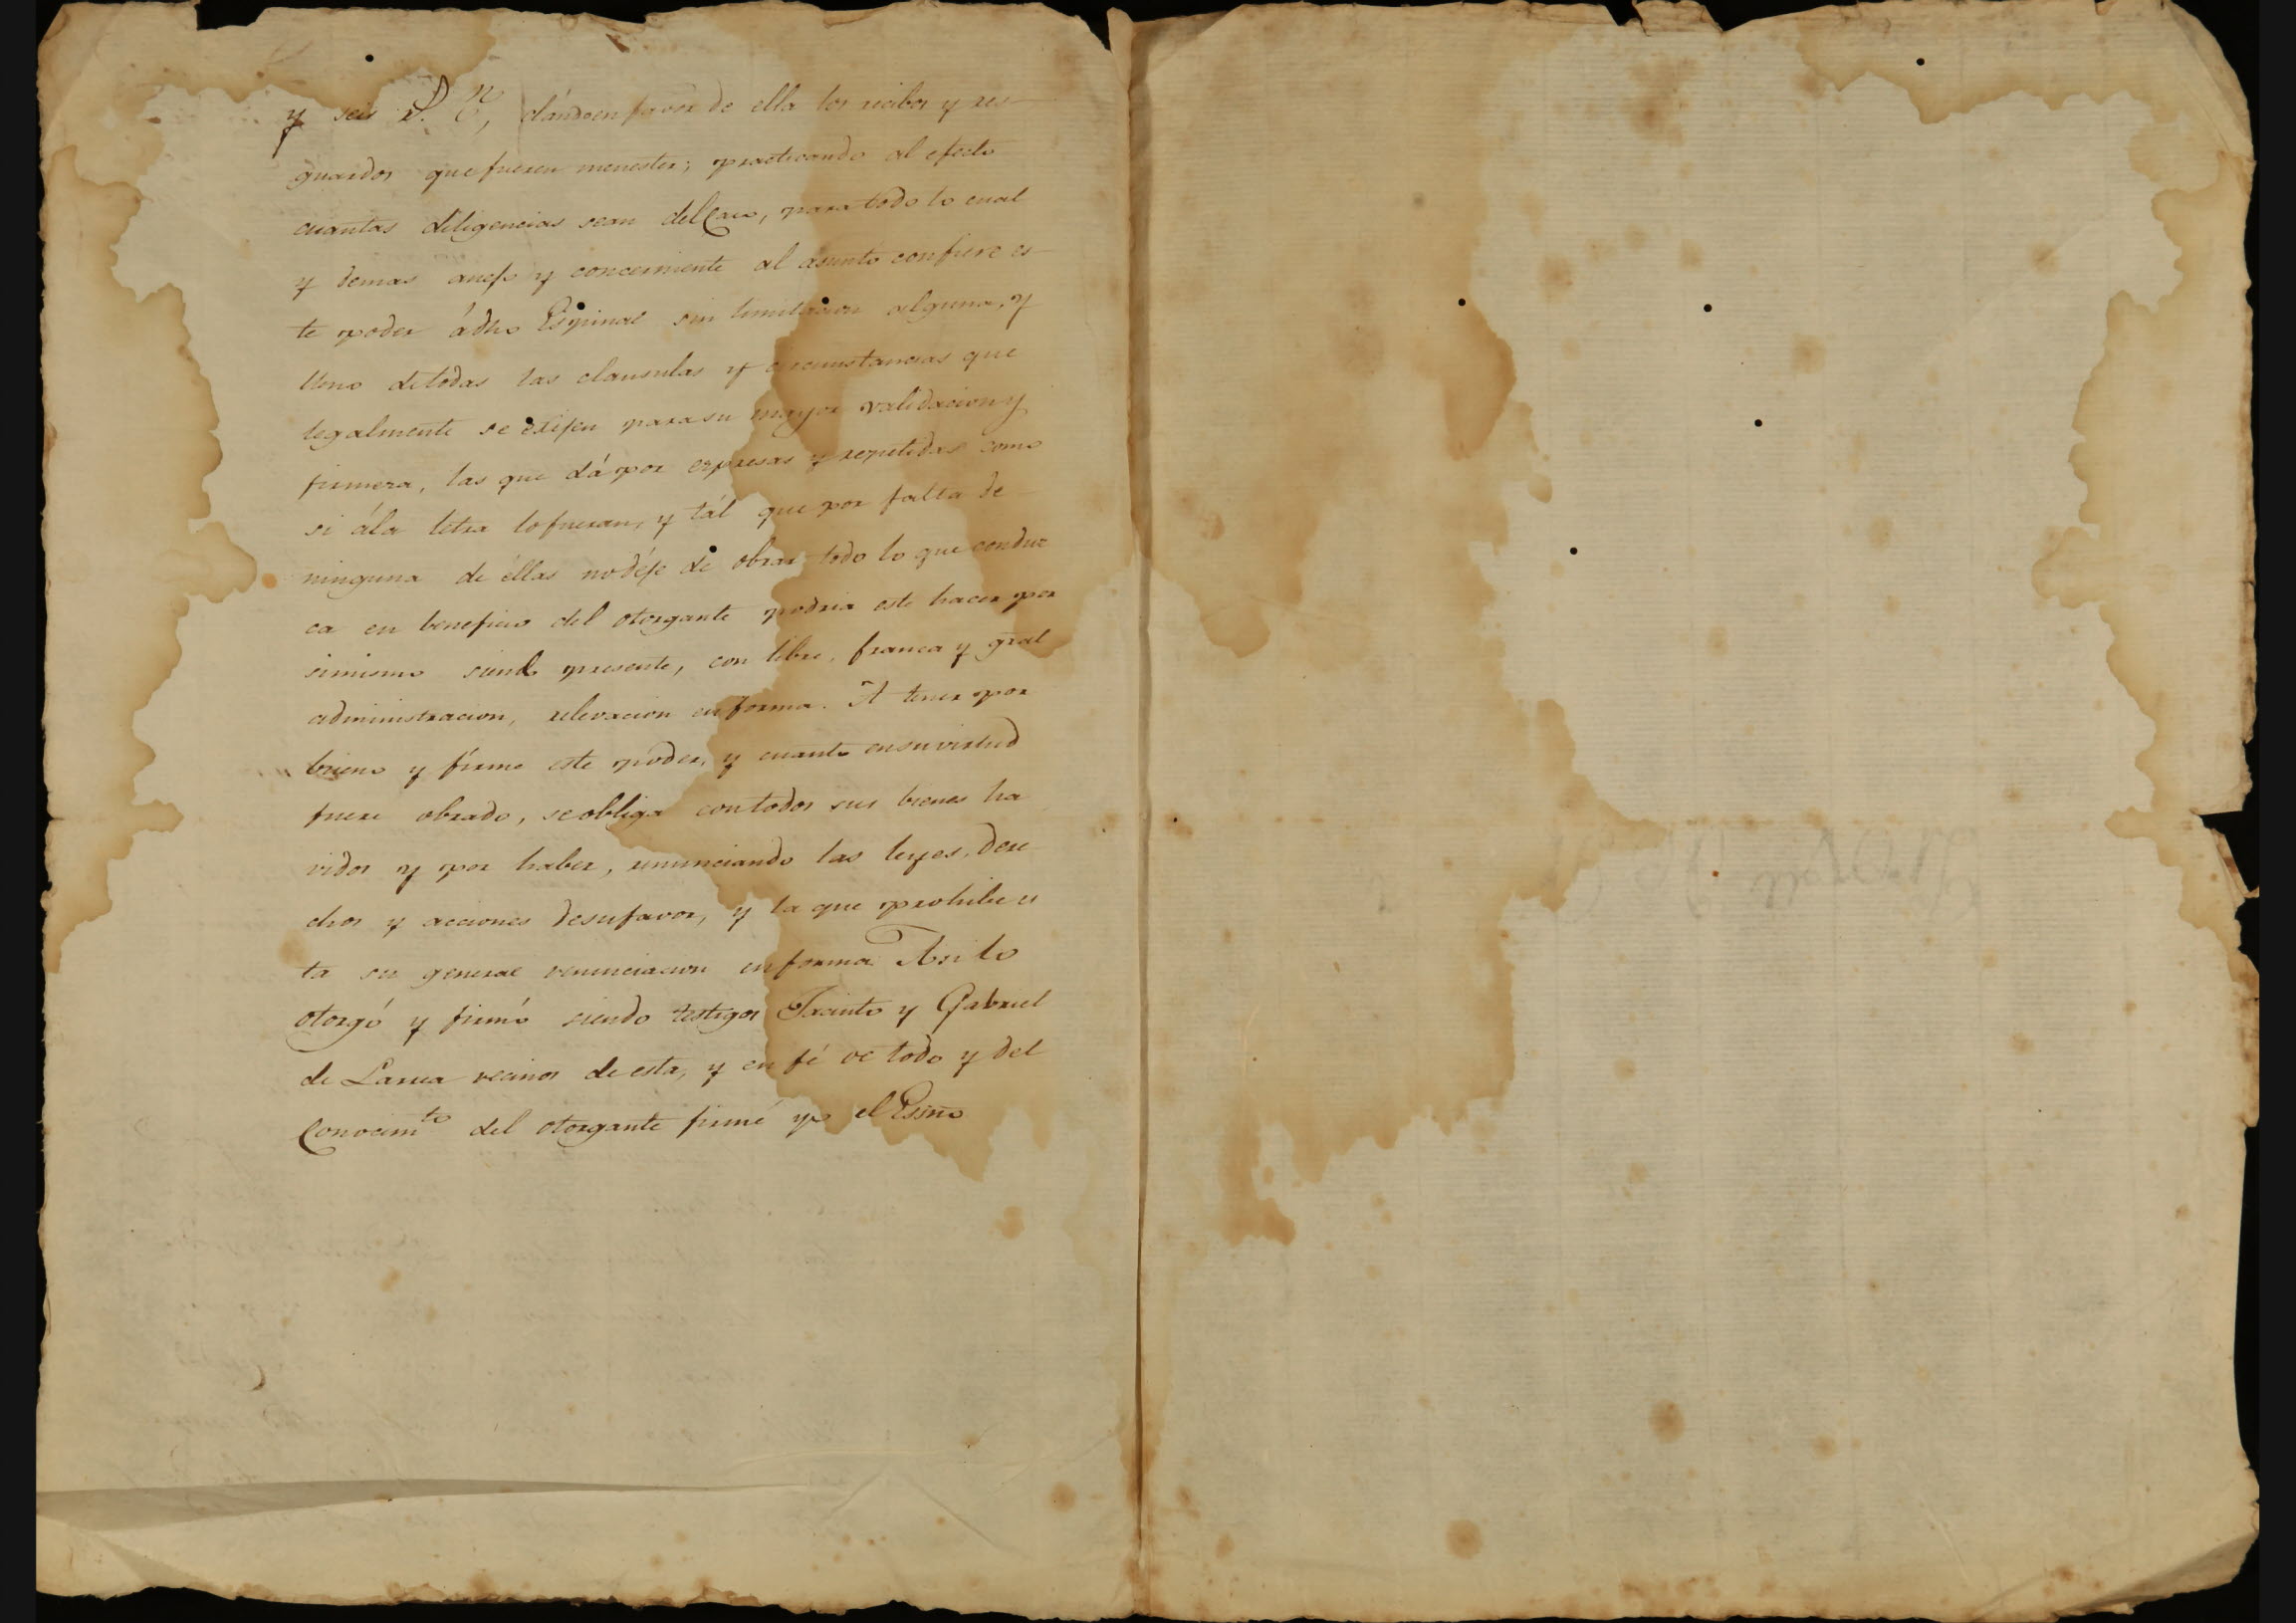 y seis D. N., dándo en favor de ella los recibos y res
guardos que fueren menester; practicando al efecto
cuantas diligencias sean del Caso, para todo lo cual
y demas anejo y concerniente al asunto confiere es
te poder á dho Espinal sin limitacion alguna, y
lleno de todas las clausulas y circunstancias que
legalmente se exijen para su mayor validacion y
firmeza, las que dá por expresas y repetidas como
si á la letra lo fueran, y tál que por falta de
ninguna de éllas no déje de obrar todo lo que conduz
ca en beneficio del otorgante podria este hacer por
simismo siendo presente, con libre, franca y gral
administracion, relevacion en forma. A tener por
bueno y firme este poder, y cuanto en su virtud
fuere obrado, se obliga con todos sus bienes ha
vidos y por haber, renunciando las leyes, dere
chos y acciones de su favor, y la que prohibe es
ta su general renunciacion en forma Asi lo
otorgó y firmó siendo testigos Jacinto y Gabriel
de Larrea vecinos de esta, y en fé de todo y del
Conocimto del otorgante firmé yo el Essno